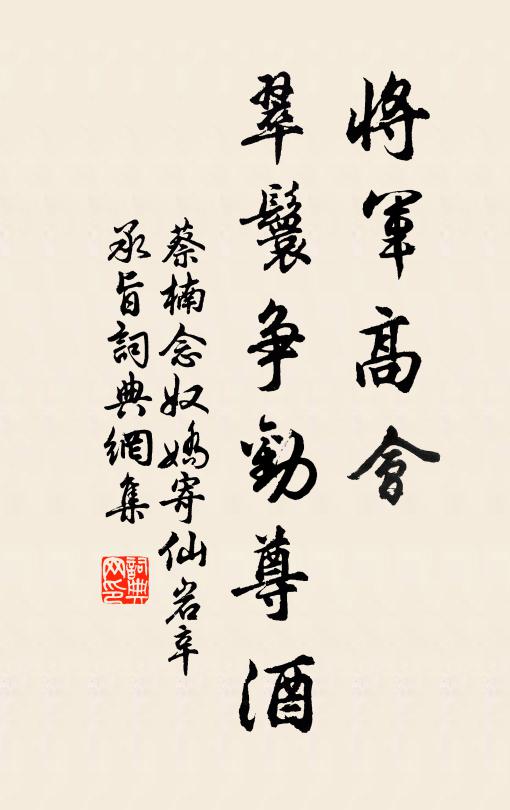 將軍高會
翠鬟争勸尊酒
蔡楠念奴嬌寄仙岩辛
承旨詞典網集
詞典
网印